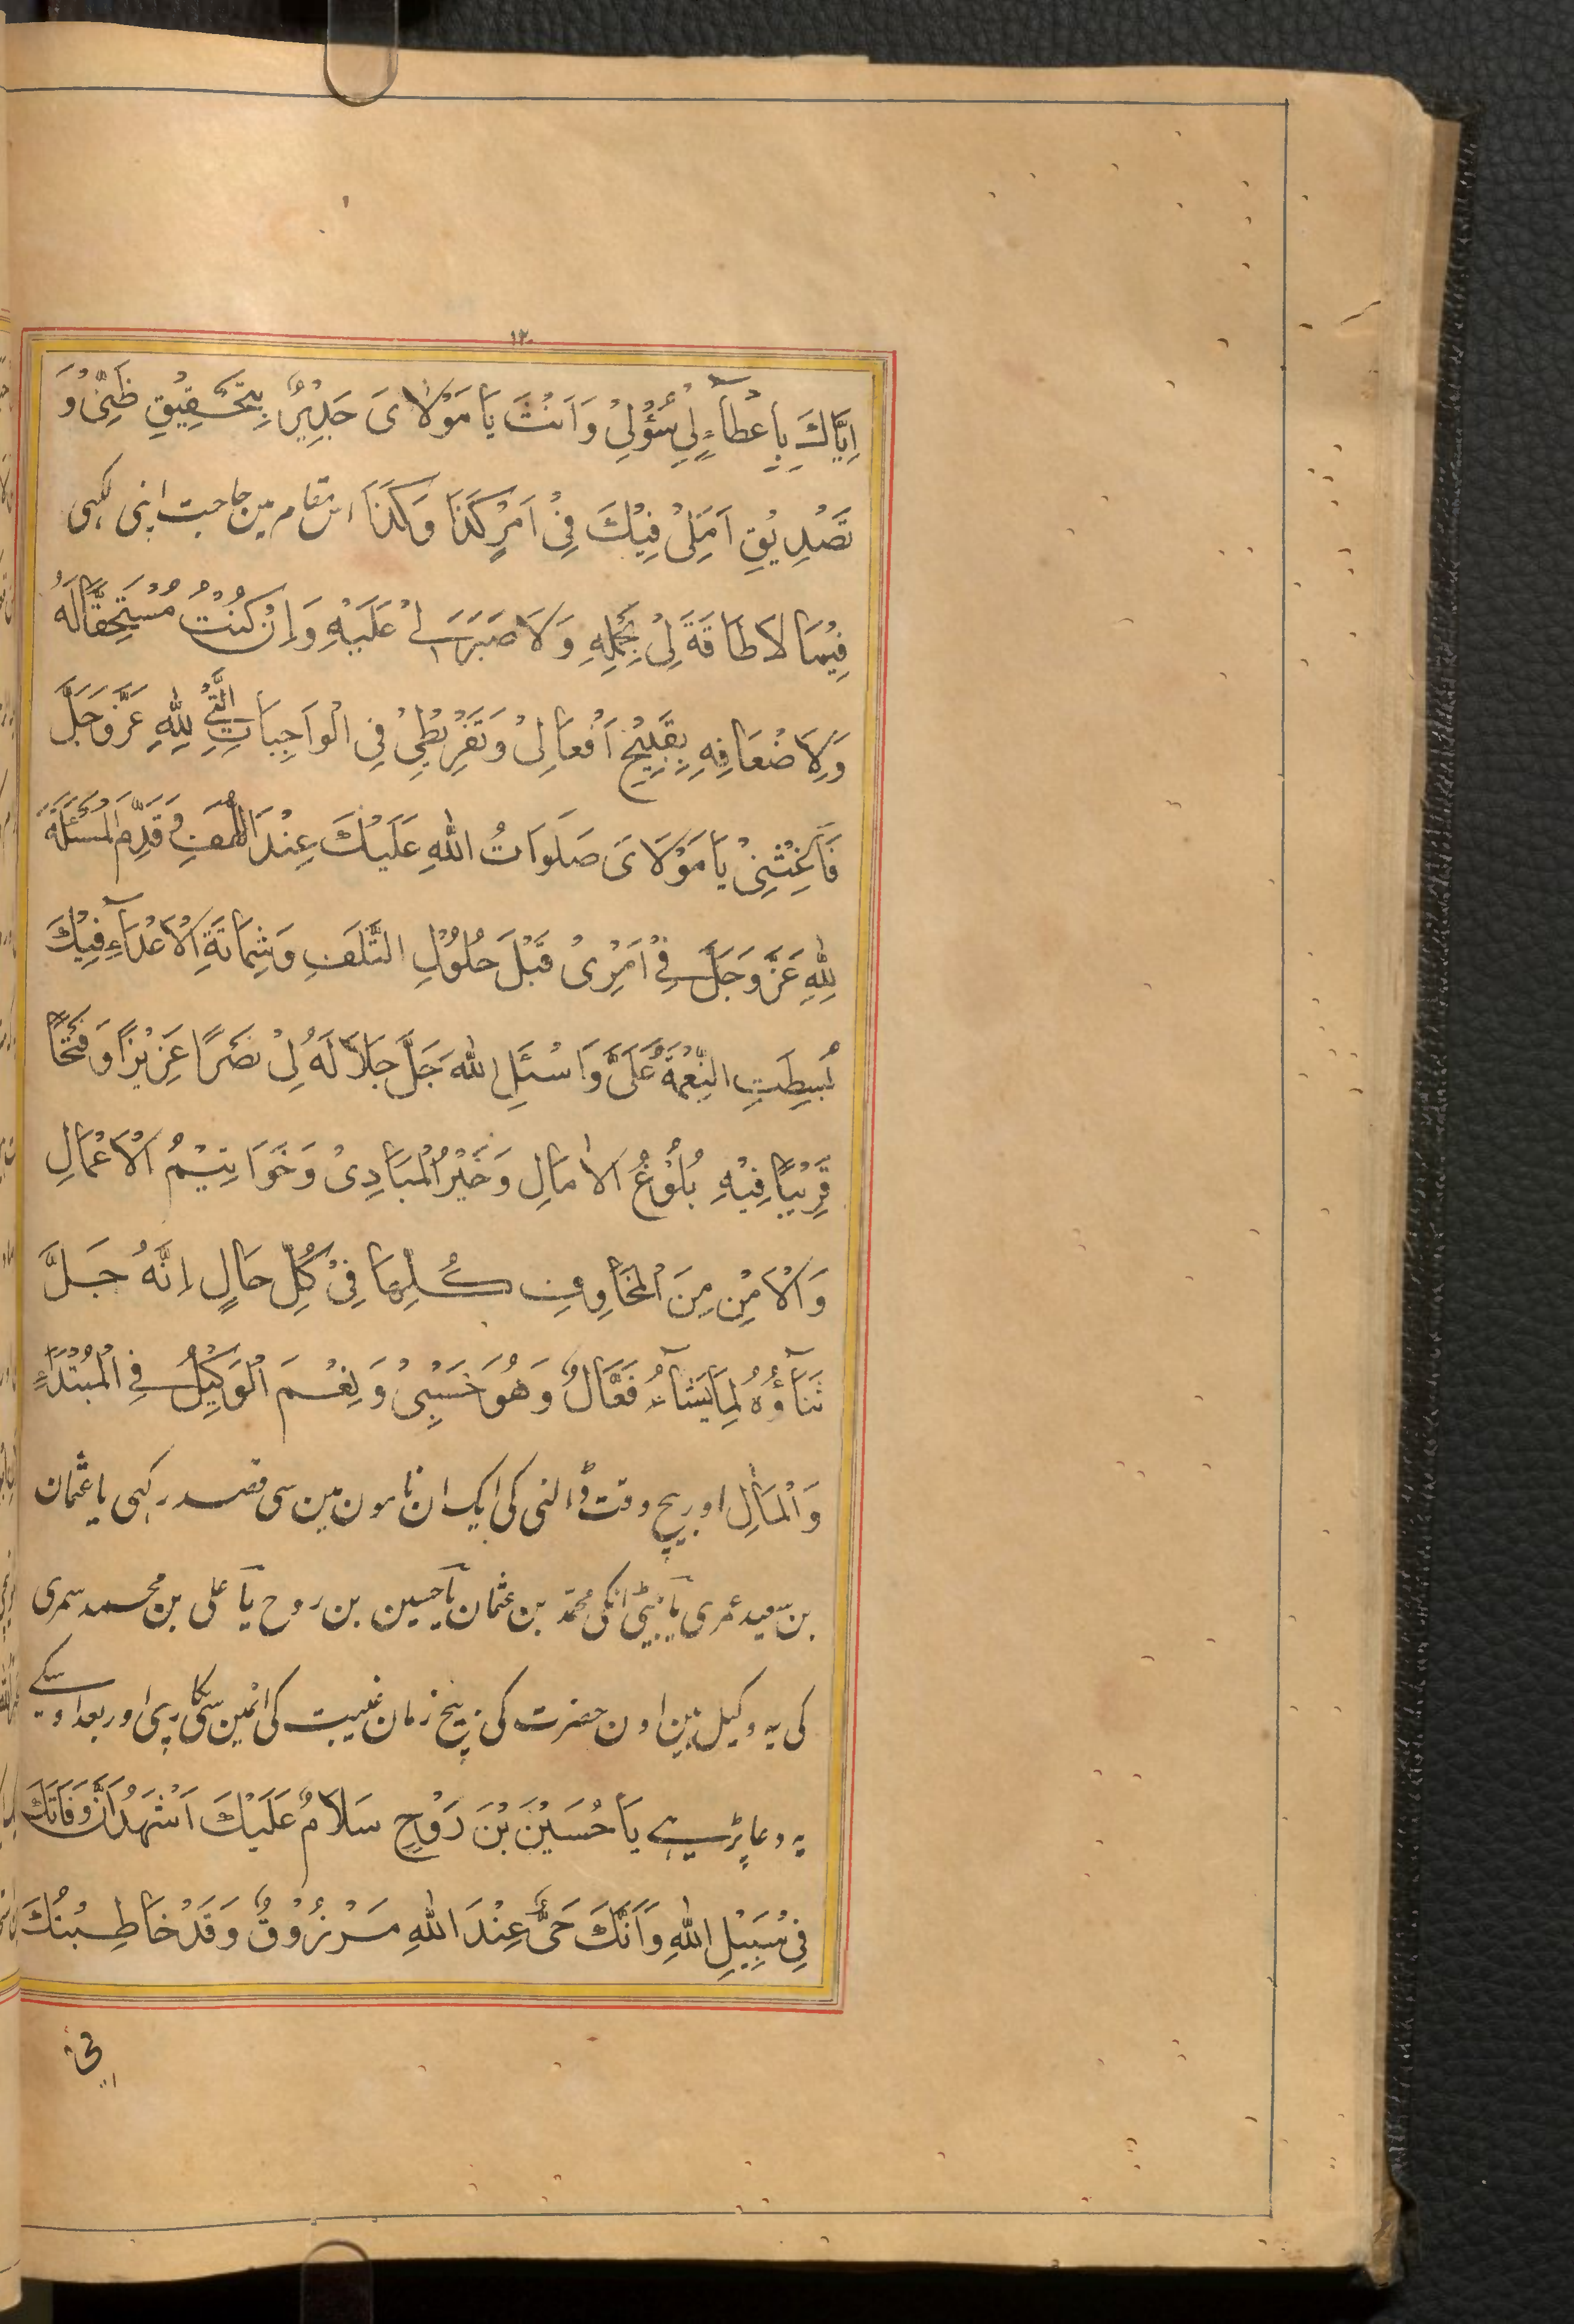 ١٢٠
اِيَّاكَ بِاِعْطَآءٍ لِيْ سُؤْلِيْ وَاَنْتَ يَا مَوْلَايَ جَدِيْرٌ بِتَحْقِيْقِ ظَنِّيْ وَ
تَصْدِيْقِ اَمَلِيْ فِيْكَ فِيْ اَمْرِ كَذَا وَكَذَا اس مقام مين حاجت اپنى لكهى
فِيْمَا لَا طَاقَةَ لِيْ بِحَمْلِهِ وَلَا صَبْرَ لِيْ عَلَيْهِ وَاِنْ كُنْتُ مُسْتَحِقًّا لَهُ
وَلِاَضْعَافِهِ بِقَبِيْحِ اَفْعَالِيْ وَتَفْرِيْطِيْ فِي الْوَاجِبَاتِ الَّتِيْ لِلّٰهِ عَزَّ وَجَلَّ
فَاَغِثْنِيْ يَا مَوْلَايَ صَلَوَاتُ اللهِ عَلَيْكَ عِنْدَ اللَّهَفِ وَقَدِّمِ الْمَسْئَلَةَ
لِلّٰهِ عَزَّ وَجَلَّ فِيْ اَمْرِيْ قَبْلَ حُلُوْلِ التَّلَفِ وَشِمَاتَةِ الْاَعْدَآءِ فَبِكَ
بُسِطَتِ النِّعْمَةُ عَلَيَّ وَاسْئَلِ اللهَ جَلَّ جَلَالَهُ لِيْ نَصْرًا عَزِيْزًا وَفَتْحًا
قَرِيْبًا فِيْهِ بُلُوْغُ الْاٰمَالِ وَخَيْرُ الْمَبَادِيْ وَخَوَاتِيْمُ الْاَعْمَالِ
وَالْاَمْنِ مِنَ الْمَخَاوِفِ كُلِّهَا فِيْ كُلِّ حَالٍ اِنَّهُ جَلَّ
ثَنَآؤُهُ لِمَا يَشَآءُ فَعَّالٌ وَهُوَ حَسْبِيْ وَنِعْمَ الْوَكِيْلُ فِي الْمُبْتَدَاءِ
وَالْمَاٰلِ اور بيچ وقت ڈالنى كى ايك ان نامون مين سى قصد ركهى يا عثمان
بن سعيد عمرى يا بيٹى انكى محمد بن عثمان يا حسين بن روح يا على بن محمد سمرى
كى يه وكيل ہين اون حضرت كى بيچ زمان غيبت كى انمين سى پكارى اور بعد اوسكے
يه دعا پڑہے يَا حُسَيْنَ بْنَ رَوْحٍ سَلَامٌ عَلَيْكَ اَشْهَدُ اَنَّ وَفَاتَكَ
فِيْ سَبِيْلِ اللهِ وَاَنَّكَ حَيٌّ عِنْدَ اللهِ مَرْزُوْقٌ وَقَدْ خَاطَبْتُكَ
فى